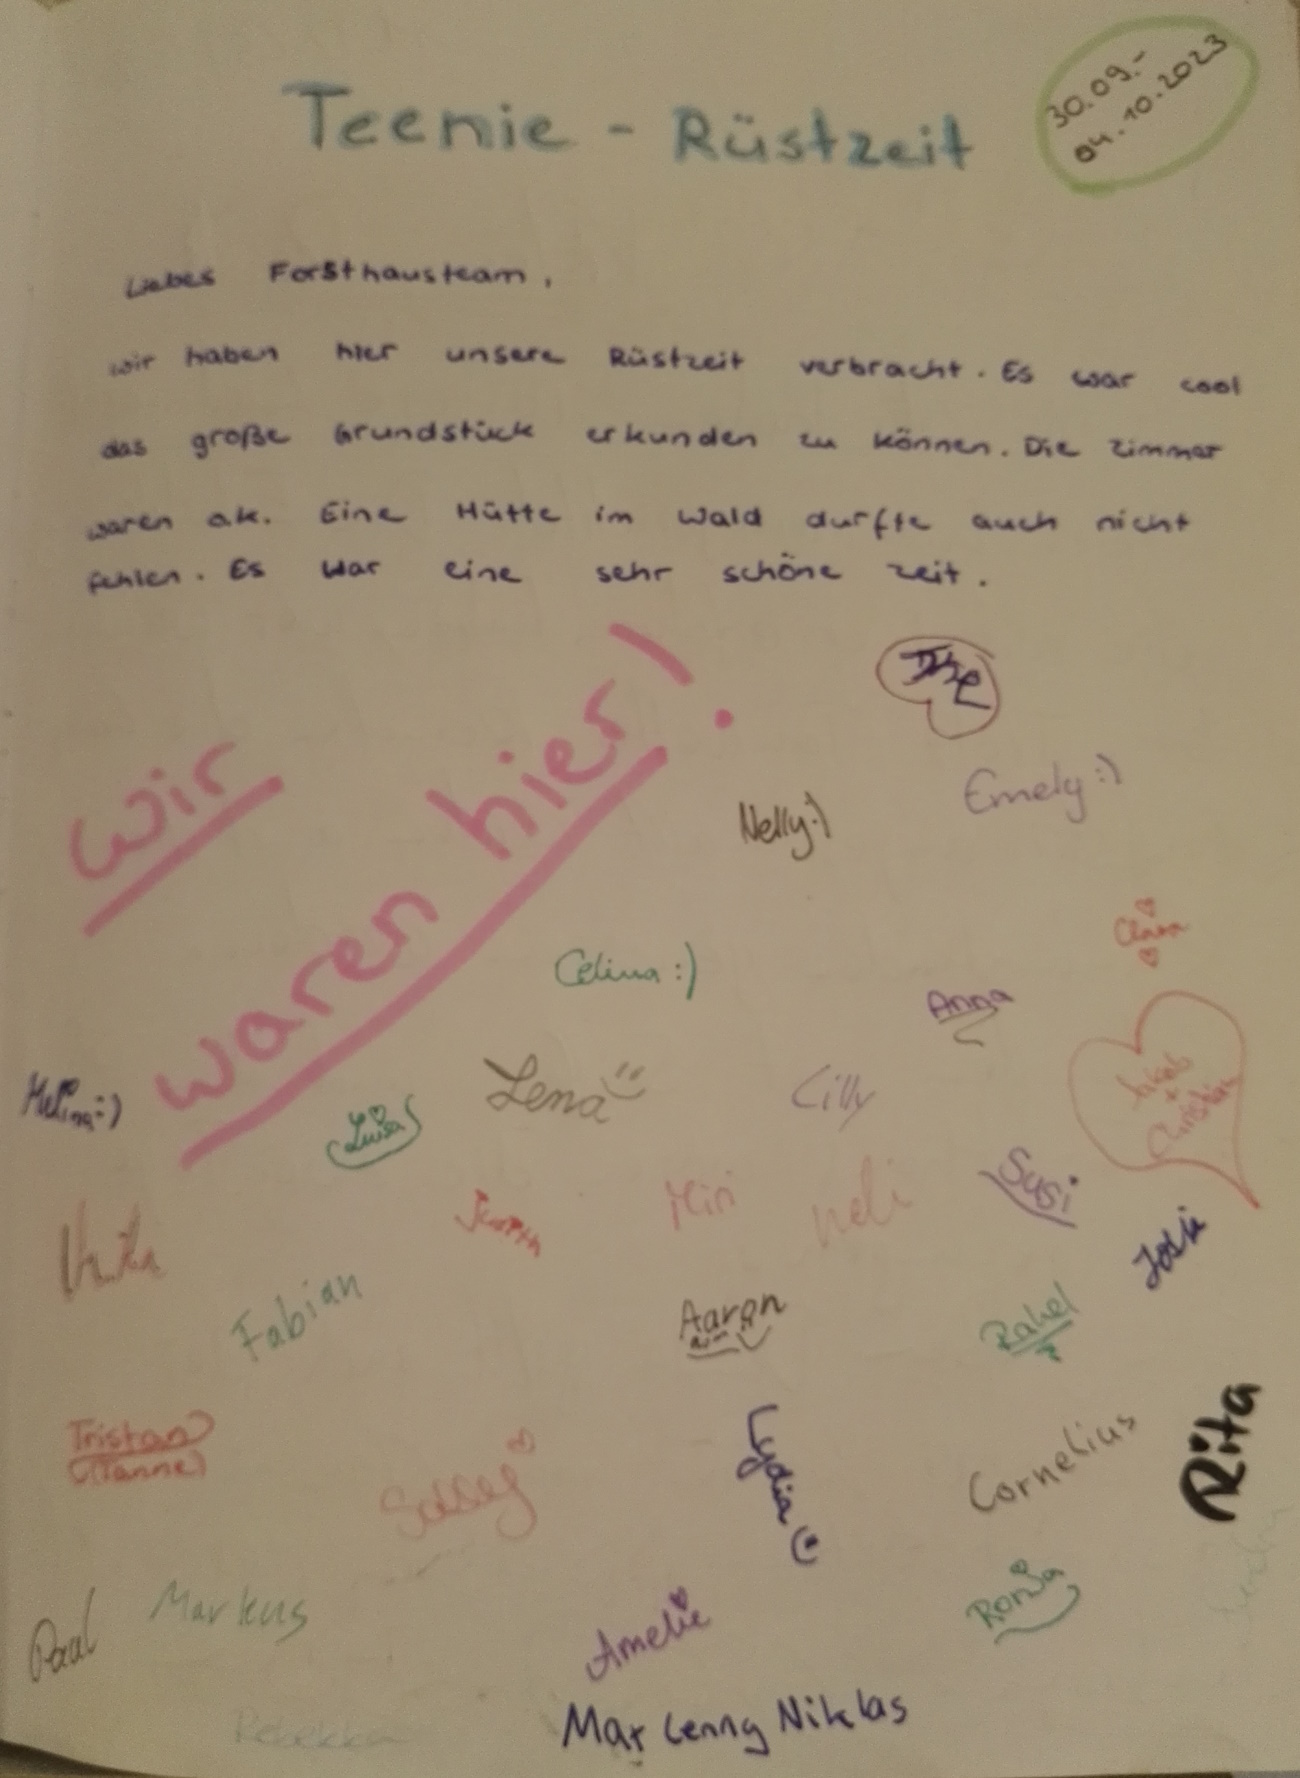 30.09.-
04.10.2023
Teenie - Rüstzeit
Liebes Forsthausteam,
wir haben hier unsere Rüstzeit verbracht. Es war cool
das große Grundstück erkunden zu können. Die Zimmer
waren o.k. Eine Hütte im Wald durfte auch nicht
fehlen. Es war eine sehr schöne Zeit.
Wir
waren hier!
Emely :)
Nelly :)
Clara
Celina :)
Anna
Melina :)
Luisa
Lena
Cilly
Miri
Neli
Susi
Fabian
Aaron
Rahel
Tristan
(Tanne)
Lydia
Cornelius
Rita
Paul
Markus
Amelie
Ronja
Rebekka
Max Lenny Niklas